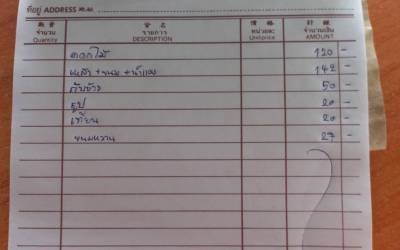 ที่อยู่ ADDRESS
數量 貨名 價格 計銀
จำนวน รายการ หน่วยละ จำนวนเงิน
Quantity DESCRIPTION Unitprice AMOUNT
ดอกไม้ 120 -
+ ขนม + น้ำแดง 142 -
50 -
ธูป 20 -
เทียน 20 -
ขนมหวาน 27 -